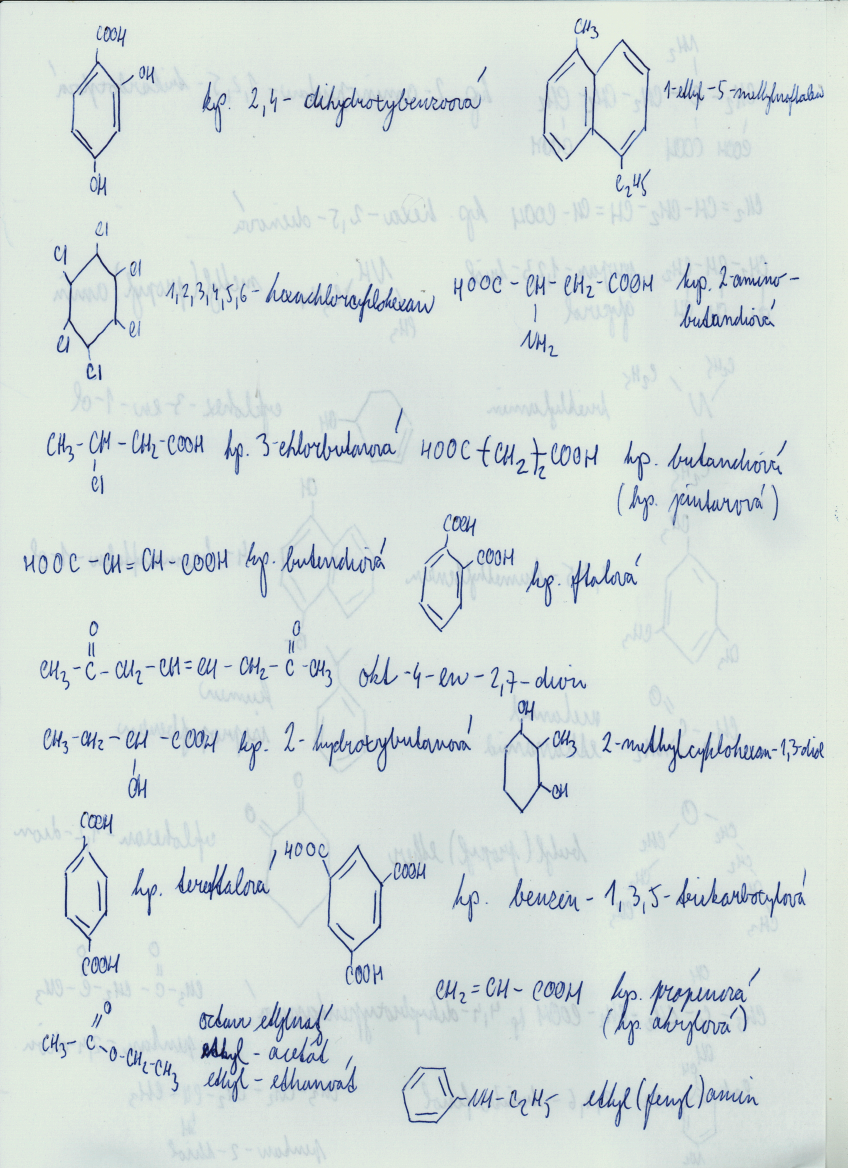 COOH
OH
OH
kp. 2,4- dihydroxybenzoová
CH3
1-ethyl-5-methylnaftalen
C2H5
Cl
Cl
Cl
Cl
Cl
Cl
1,2,3,4,5,6-hexachlorcyklohexan
HOOC - CH - CH2 - COOH
NH2
kys. 2-amino-
butandiová
CH3 - CH - CH2 - COOH
Cl
kp. 3-chlorbutanová
HOOC -(CH2)2- COOH
kp. butandiová
(kp. jantarová)
HOOC - CH = CH - COOH
kp. butendiová
COOH
COOH
kp. ftalová
O
O
CH3 - C - CH2 - CH = CH - CH2 - C - CH3
okt-4-en-2,7-dion
CH3 - CH2 - CH - COOH
OH
kp. 2-hydroxybutanová
OH
CH3
OH
2-methylcyklohexan-1,3-diol
COOH
COOH
kp. tereftalová
HOOC
COOH
COOH
kp. benzen-1,3,5-trikarboxylová
CH2 = CH - COOH
kp. propenová
(kp. akrylová)
O
CH3 - C
O - CH2 - CH3
octan ethylnatý
ethyl-acetát
ethyl-ethanoát
NH - C2H5
ethyl(fenyl)amin